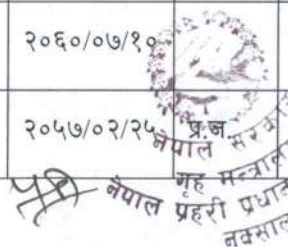 २०६०/०७/१०
२०५७/०२/२५ प्र.ज.
नेपाल सरकार
गृह मन्त्रालय
नेपाल प्रहरी प्रधान
नक्साल